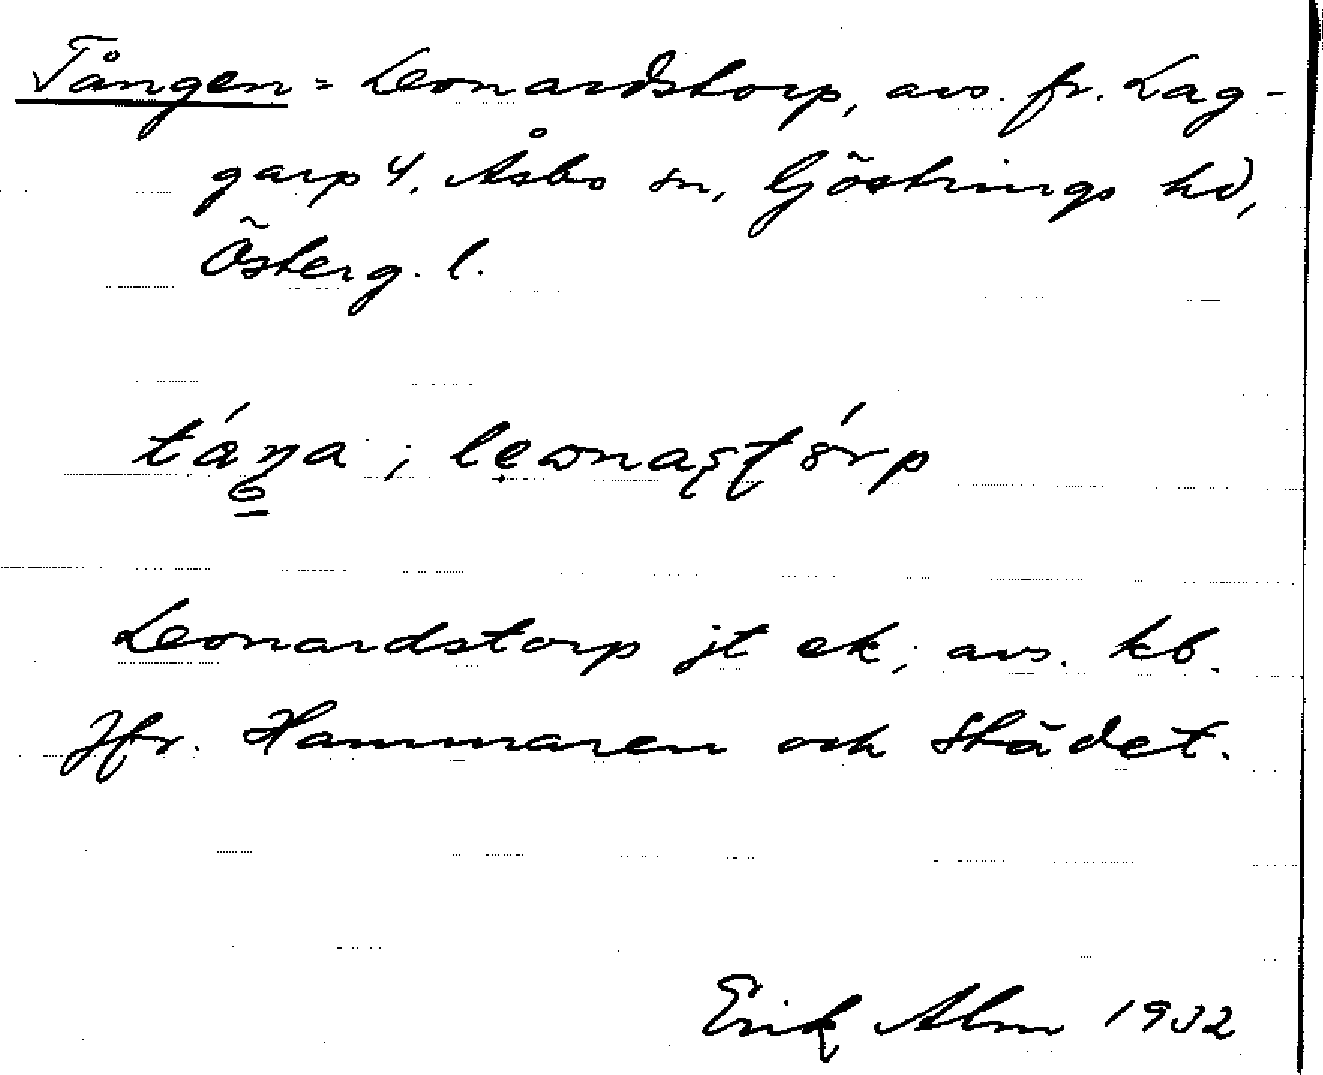 Tången = Leonardstorp, avs. fr. Lag-
garp 4, Åsbo sn, Göstrings hd,
Österg. l.
Leonardstorp jt ek; avs. kb.
Jfr. Hammaren och Städet.
Erik Alm 1932